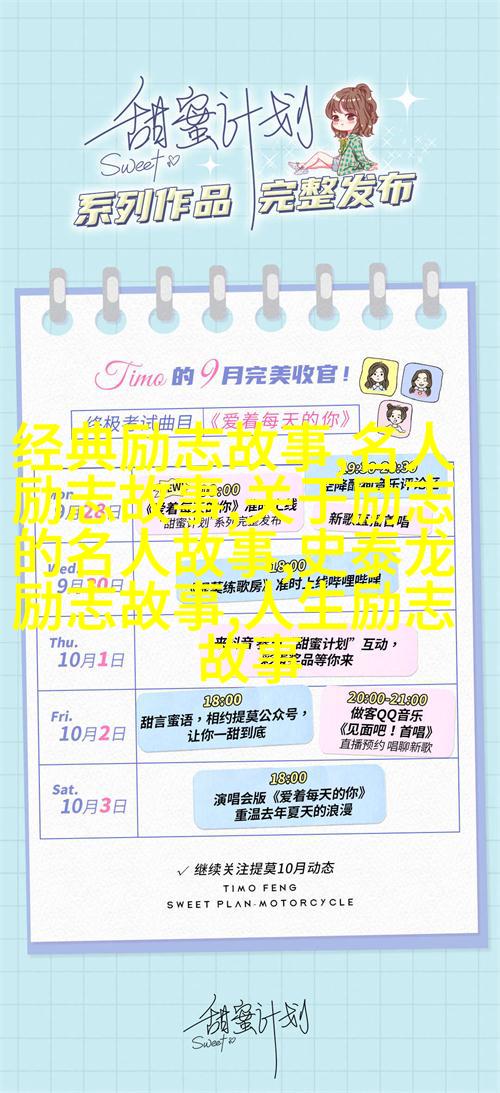 甜蜜计划
Sweet
系列作品 完整发布
Timo的9月完美收官！
终极考试曲目《爱着每天的你》
经典励志故事,名人
励志故事,关于励志
的名人故事,史泰龙
励志故事,人生励志
故事
Mon.
9月28日
《爱着每天的你》准时上线
“甜蜜计划”系列完整发布
19:30-20:30
新歌直播首唱
Wed.
9月30日
18:00
《提莫练歌房》准时上线哔哩哔哩
Thu.
10月1日
“甜蜜计划”互动，
奖品等你来
Fri.
10月2日
18:00
甜言蜜语，相约提莫公众号，
让你一甜到底
20:00-21:00
做客QQ音乐
《见面吧！首唱》
直播预约 唱聊新歌
Sat.
10月3日
18:00
演唱会版《爱着每天的你》
重温去年夏天的浪漫
✓ 继续关注提莫10月动态
TIMO FENG
SWEET PLAN-MOTORCYCLE
甜蜜计划
Sweet